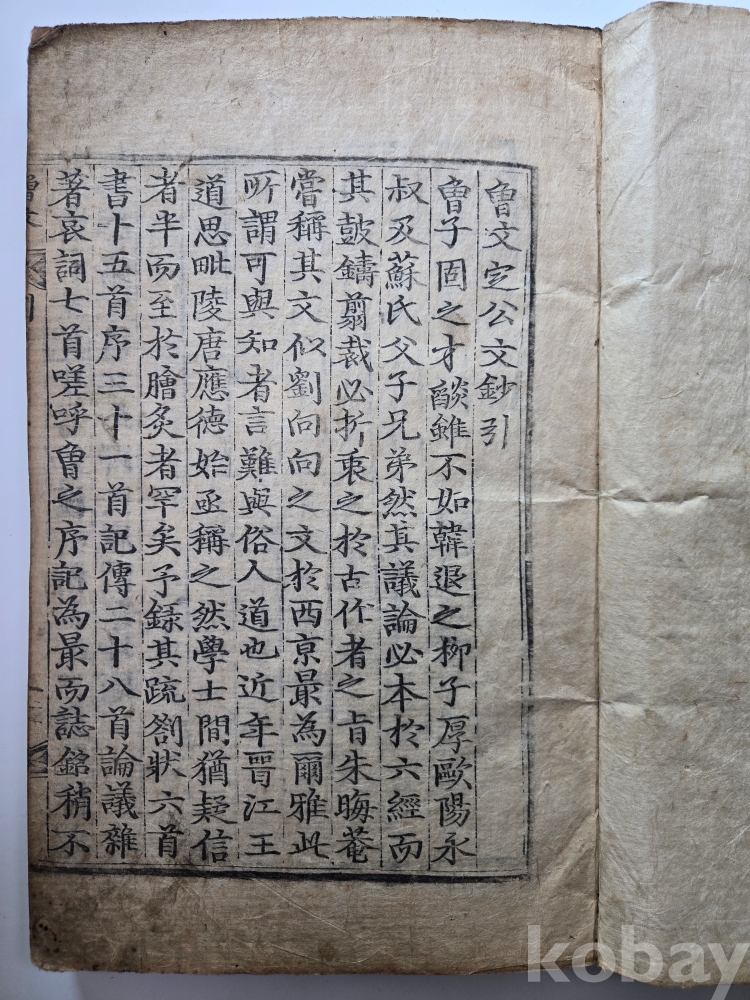 曾文定公文鈔引
曾子固之才燄雖不如韓退之柳子厚歐陽永
叔及蘇氏父子兄弟然其議論必本於六經而
其鼓鑄剪裁必折衷之於古作者之旨朱晦菴
嘗稱其文似劉向向之文於西京最為爾雅此
所謂可與知者言難與俗人道也近年晉江王
道思毗陵唐應德始亟稱之然學士間猶疑信
者半而至於膾炙者罕矣予錄其疏劄狀六首
書十五首序三十一首記傳二十八首論議雜
著哀詞七首嗟呼曾之序記為最而誌銘稍不
kobay